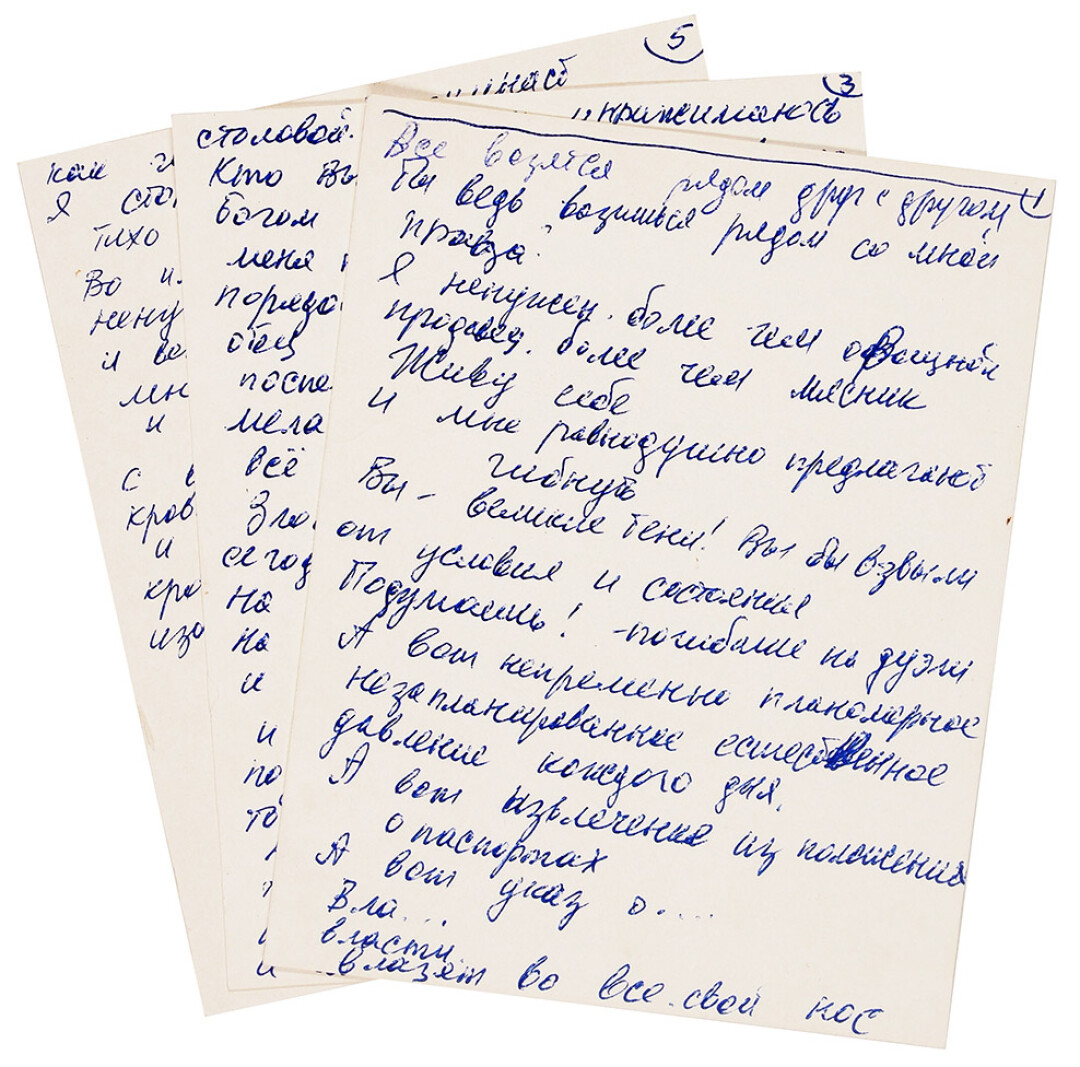 5
3
прижимаюсь
1
Все возятся рядом друг с другом
Ты ведь возишься рядом со мной
правда?
Я ненужен. более чем овощной
продавец. более чем мясник
Живу себе
и мне равнодушно предлагают
гибнуть
Вы - великие тени! Вы бы взвыли
от условия и состояния
Подумаешь! - погибали на дуэли
А вот непременно планомерное
незапланированное естественное
давление каждого дня.
А вот извлечение из положения
о паспортах
А вот указ о....
Вла...
власти
влазят во все свой нос
столовой.
Кто Вы
богом
меня
порядо
отец
поспе
мела
всё
Зло
сегод
на
на
и
и
по
то
и
как
Я сто
тихо
Во и
нену
и
мен
и
с
кров
и
кро
изо